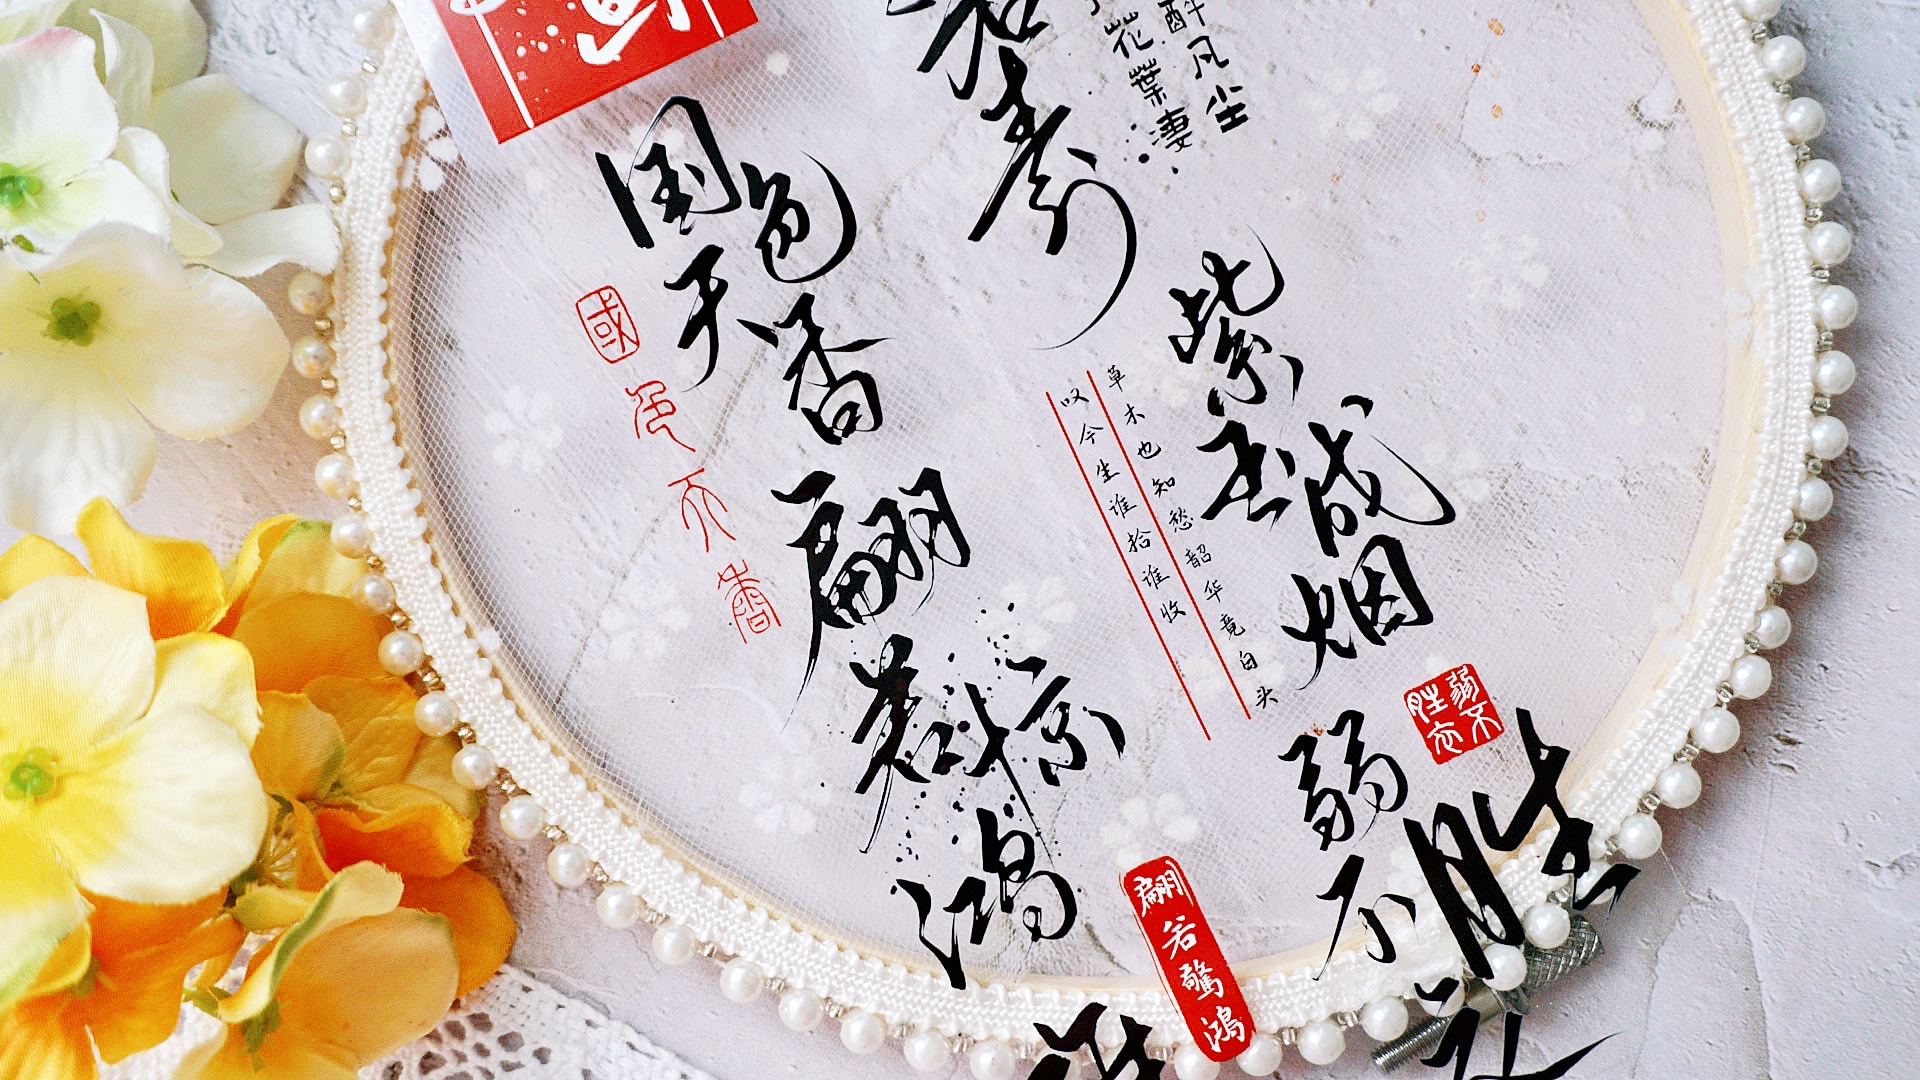 国色天香
國色天香
翩若惊鸿
翩若驚鴻
醉凡尘
花葉凄
紫玉成烟
草木也知愁韶华竟白头
叹今生谁拾谁收
弱不胜衣
弱不胜衣